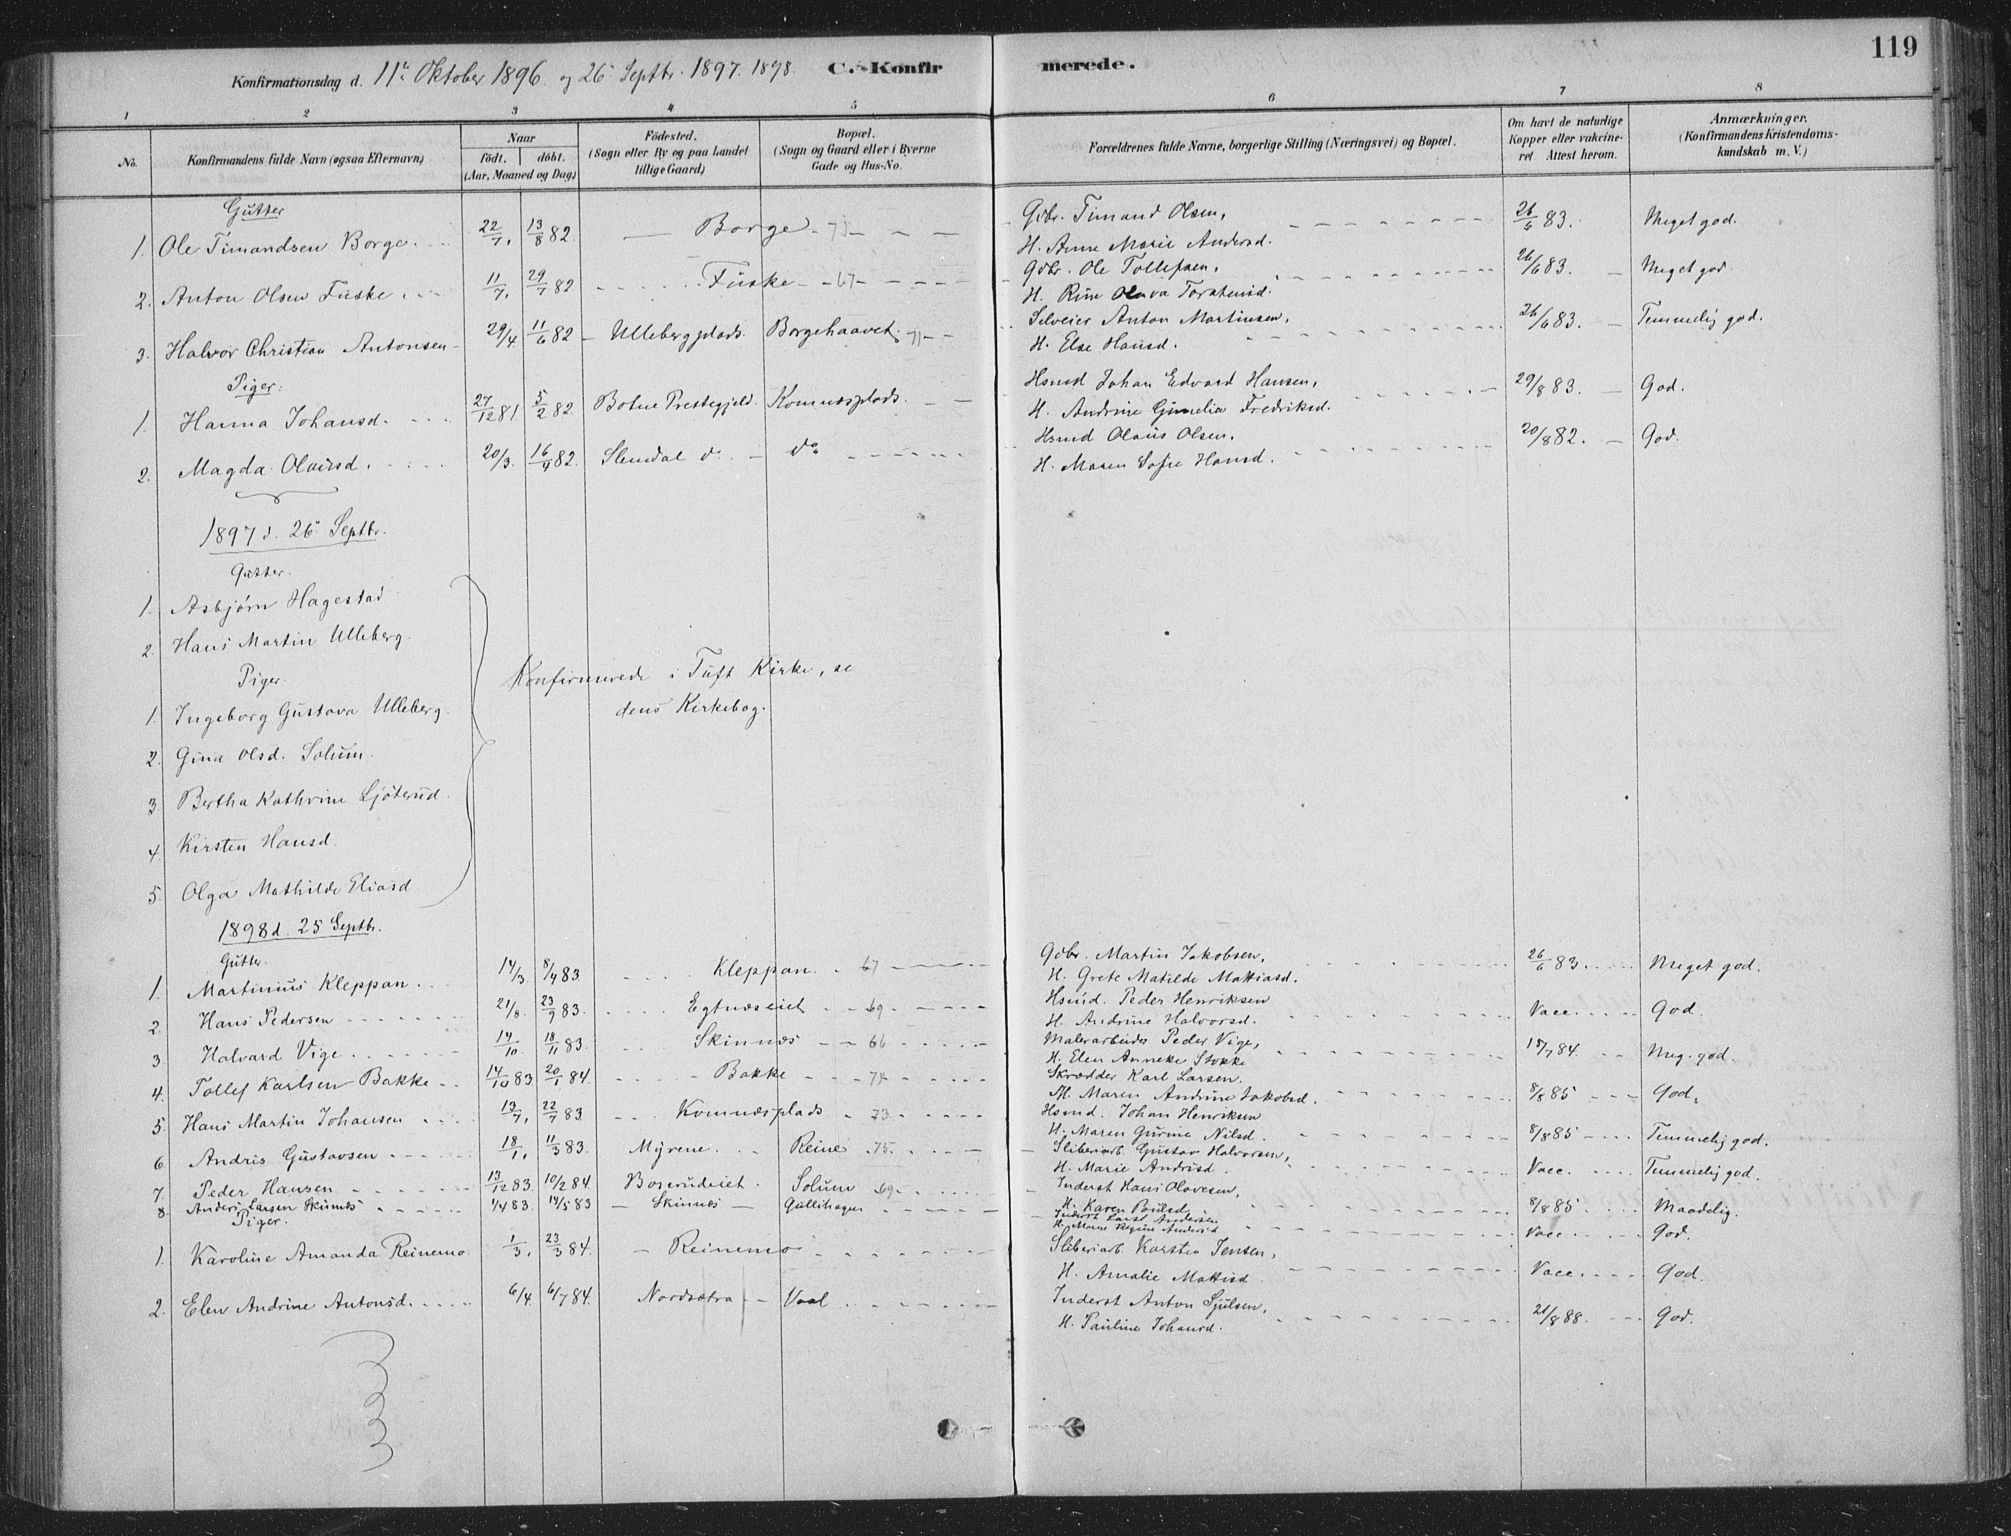 119
Konfirmationsdag d. 11te Oktober 1896 og 26 Septbr. 1897. 1898. C. Konfirmerede.
1 2 3 4 5 6 7 8
No. Konfirmandens fulde Navn (ogsaa Efternavn) Naar født. døbt. (Aar, Maaned og Dag.) Fødested. (Sogn eller By og paa Landet tillige Gaard.) Bopæl. (Sogn og Gaard eller i Byerne Gade og Hus-No. Forældrenes fulde Navne, borgerlige Stilling (Næringsvei) og Bopæl. Om havt de naturlige Kopper eller vakcineret. Attest herom. Anmærkninger. (Konfirmandens Kristendomskundskab m. V.)
Gutter
1. Ole Timandsen Borge 22/7. 13/8 82. Borge Gdbr. Timand Olsen, H. Anne Marie Andersd. 26/6 83. Meget god.
2. Anton Olsen Fuske 11/7. 29/7 82 Fuske 67 Gdbr. Ole Tollefsen, H. Rine Olava Torstensd. 26/6 83. Meget god.
3. Halvor Christian Antonsen 29/4. 11/6 82 Ullebergplads Borgehaavet 71 Selveier Anton Martinsen, H. Else Hansd. 26/6 83. Temmelig god.
Piger:
1. Hanna Johansd. 27/12 81 5/2 82 Botne Prestegjeld. Komnæsplads Hsmd Johan Edvard Hansen, H. Andrine Gunelia Fredriksd. 29/8 83. God.
2. Magda Olausd. 20/3. 16/4 82. do do Hsmd Olaus Olsen. H. Maren Sofie Hansd. 20/8 82. God.
1897 d. 26 Septbr.
Gutter.
1. Asbjørn Hagestad
2. Hans Martin Ulleberg.
Piger.
1. Ingeborg Gustava Ulleberg.
2. Gina Olsd. Solum.
3. Bertha Kathrine Ljøterud.
4 Kirsten Hansd.
5. Olga Mathilde Eliasd
Konfirmerede i Tuft Kirke, se
dens Kirkebog.
1898 d. 25 Septbr.
Gutter.
1. Martinius Kleppan 14/3 8/4 83 Kleppan 67 Gdbr. Martin Jakobsen, H. Grete Matilde Mattiasd. 26/6 83. Meget god.
2. Hans Pedersen 21/8. 23/9 83. Egtnæseiet 69 Hsmd. Peder Henriksen H. Andrine Halvorsd. Vacc. God.
3. Halvard Vige 14/10. 18/11 83. Skinnæs 66 Malerarbeider Peder Vige, H. Elen Anneke Stokke 15/7 84. Meg. god.
4. Tollef Karlsen Bakke 14/10 83 20/1 84. Bakke 74 Skrædder Karl Larsen. H. Maren Andrine Jakobsd. 8/8 85 God.
5. Hans Martin Johansen 13/7. 22/7 83. Komnæsplads 73 Hsmd. Johan Henriksen H. Maren Gurine Nilsd. 8/8 85 Temmelig god.
6. Andris Gustavsen 18/1. 11/3 83. Myrene Reine 75. Sliberiarb. Gustav Halvorsen, H. Marie Andrisd. Vacc. Temmelig god.
7. Peder Hansen 13/12 83. 10/2 84. Boserudeiet Solum 69 Inderst Hans Olavesen, H. Karen Poulsd. 8/8 85 Maadelig.
8. Anders Larsen Skinnæs 1/4 83 14/5 83 Skinnæs Gullihagen Inderst Lars Andersen H. Maren Regine Andersd Vacc. God.
Piger.
1. Karoline Amanda Reinemo 1/3. 23/3 84. Reinemo Sliberiarb. Karsten Jensen, H. Amalie Mattisd. Vacc. God.
2. Elen Andrine Antonsd. 6/4. 6/7 84. Nordsætra Vaal Inderst Anton Sjulsen, H. Pauline Johansd. 21/8 88. God.